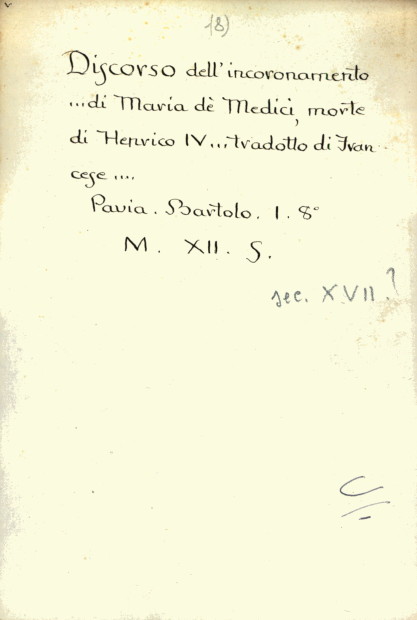 (8)
Discorso dell'incoronamento
...di Maria dè Medici, morte
di Henrico IV...tradotto di Fran-
cese....
Pavia. Bartolo. 1. 8°
M. XII. S.
sec. XVII?
C